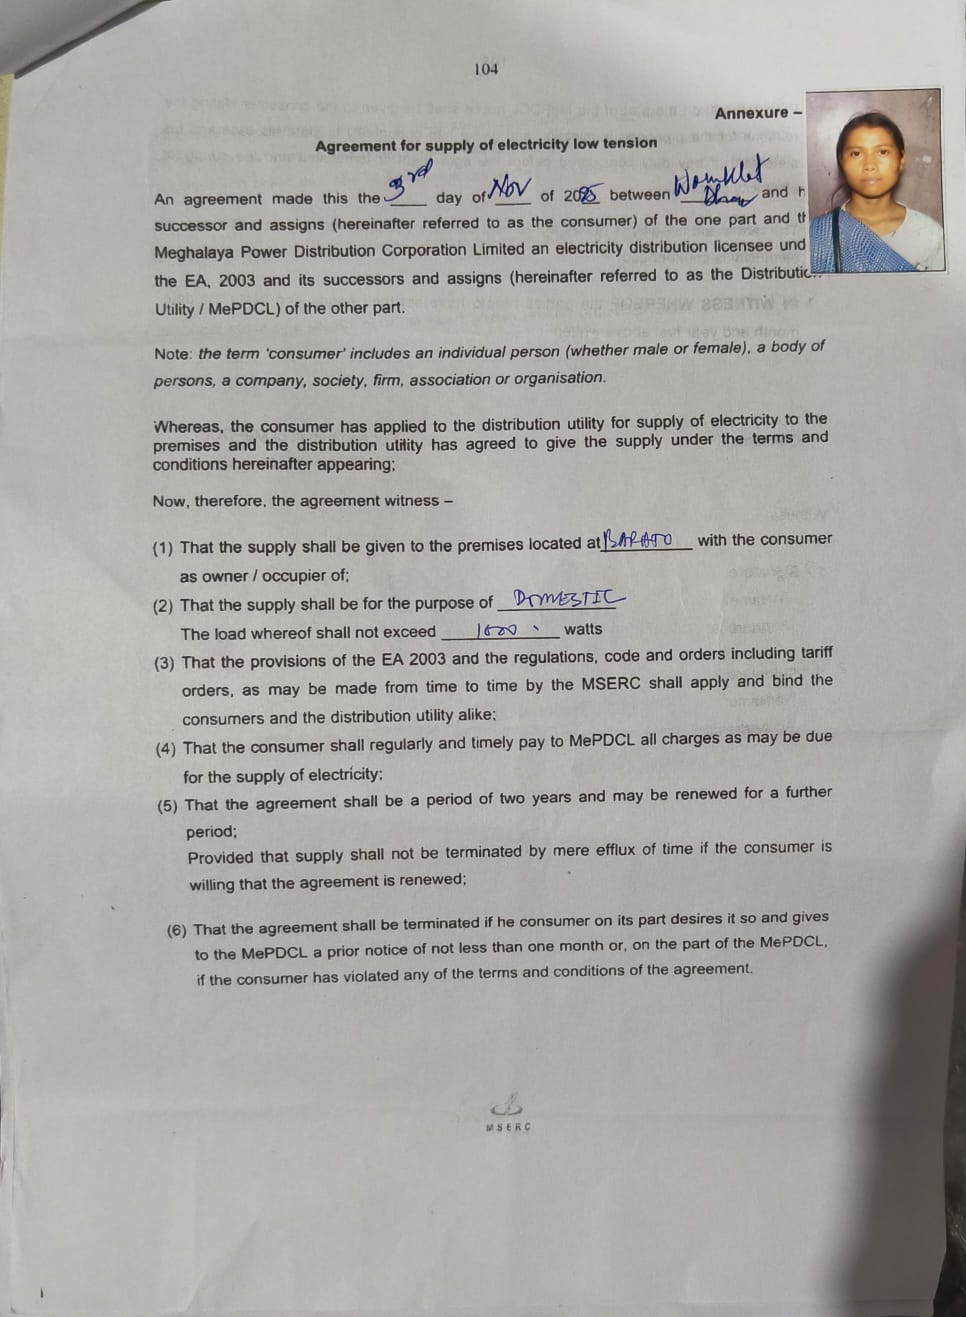 104
Annexure –
Agreement for supply of electricity low tension
An agreement made this the 3rd day of Nov of 2025 between Womklet and h
successor and assigns (hereinafter referred to as the consumer) of the one part and th
Meghalaya Power Distribution Corporation Limited an electricity distribution licensee und
the EA, 2003 and its successors and assigns (hereinafter referred to as the Distributic
Utility / MePDCL) of the other part.
Note: the term 'consumer' includes an individual person (whether male or female), a body of
persons, a company, society, firm, association or organisation.
Whereas, the consumer has applied to the distribution utility for supply of electricity to the
premises and the distribution utility has agreed to give the supply under the terms and
conditions hereinafter appearing;
Now, therefore, the agreement witness –
(1) That the supply shall be given to the premises located at BARATO with the consumer
as owner / occupier of;
(2) That the supply shall be for the purpose of DOMESTIC
The load whereof shall not exceed watts
(3) That the provisions of the EA 2003 and the regulations, code and orders including tariff
orders, as may be made from time to time by the MSERC shall apply and bind the
consumers and the distribution utility alike;
(4) That the consumer shall regularly and timely pay to MePDCL all charges as may be due
for the supply of electricity;
(5) That the agreement shall be a period of two years and may be renewed for a further
period;
Provided that supply shall not be terminated by mere efflux of time if the consumer is
willing that the agreement is renewed;
(6) That the agreement shall be terminated if he consumer on its part desires it so and gives
to the MePDCL a prior notice of not less than one month or, on the part of the MePDCL,
if the consumer has violated any of the terms and conditions of the agreement.
MSERC